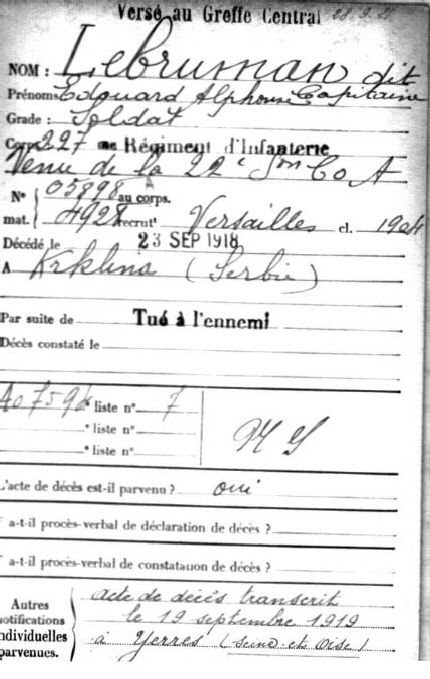 Versé au Greffe Central 28.9.21
NOM : Lebruman dit
Prénoms Edouard Alphonse Capitaine
Grade : Soldat
Corps 227 me Régiment d'Infanterie
Venu de la 22e Son Co A
N° 05898 au corps.
mat. 4928 recrut' Versailles cl. 1904
Décédé le 23 SEP 1918
A Krklina (Serbie)
Par suite de Tué à l'ennemi
Décès constaté le
liste n° 7
° liste n°
° liste n°
L'acte de décès est-il parvenu ? oui
a-t-il procès-verbal de déclaration de décès ?
a-t-il procès-verbal de constatation de décès ?
Autres
notifications
individuelles
parvenues.
acte de décès transcrit
le 19 septembre 1919
à Yerres (Seine et Oise)